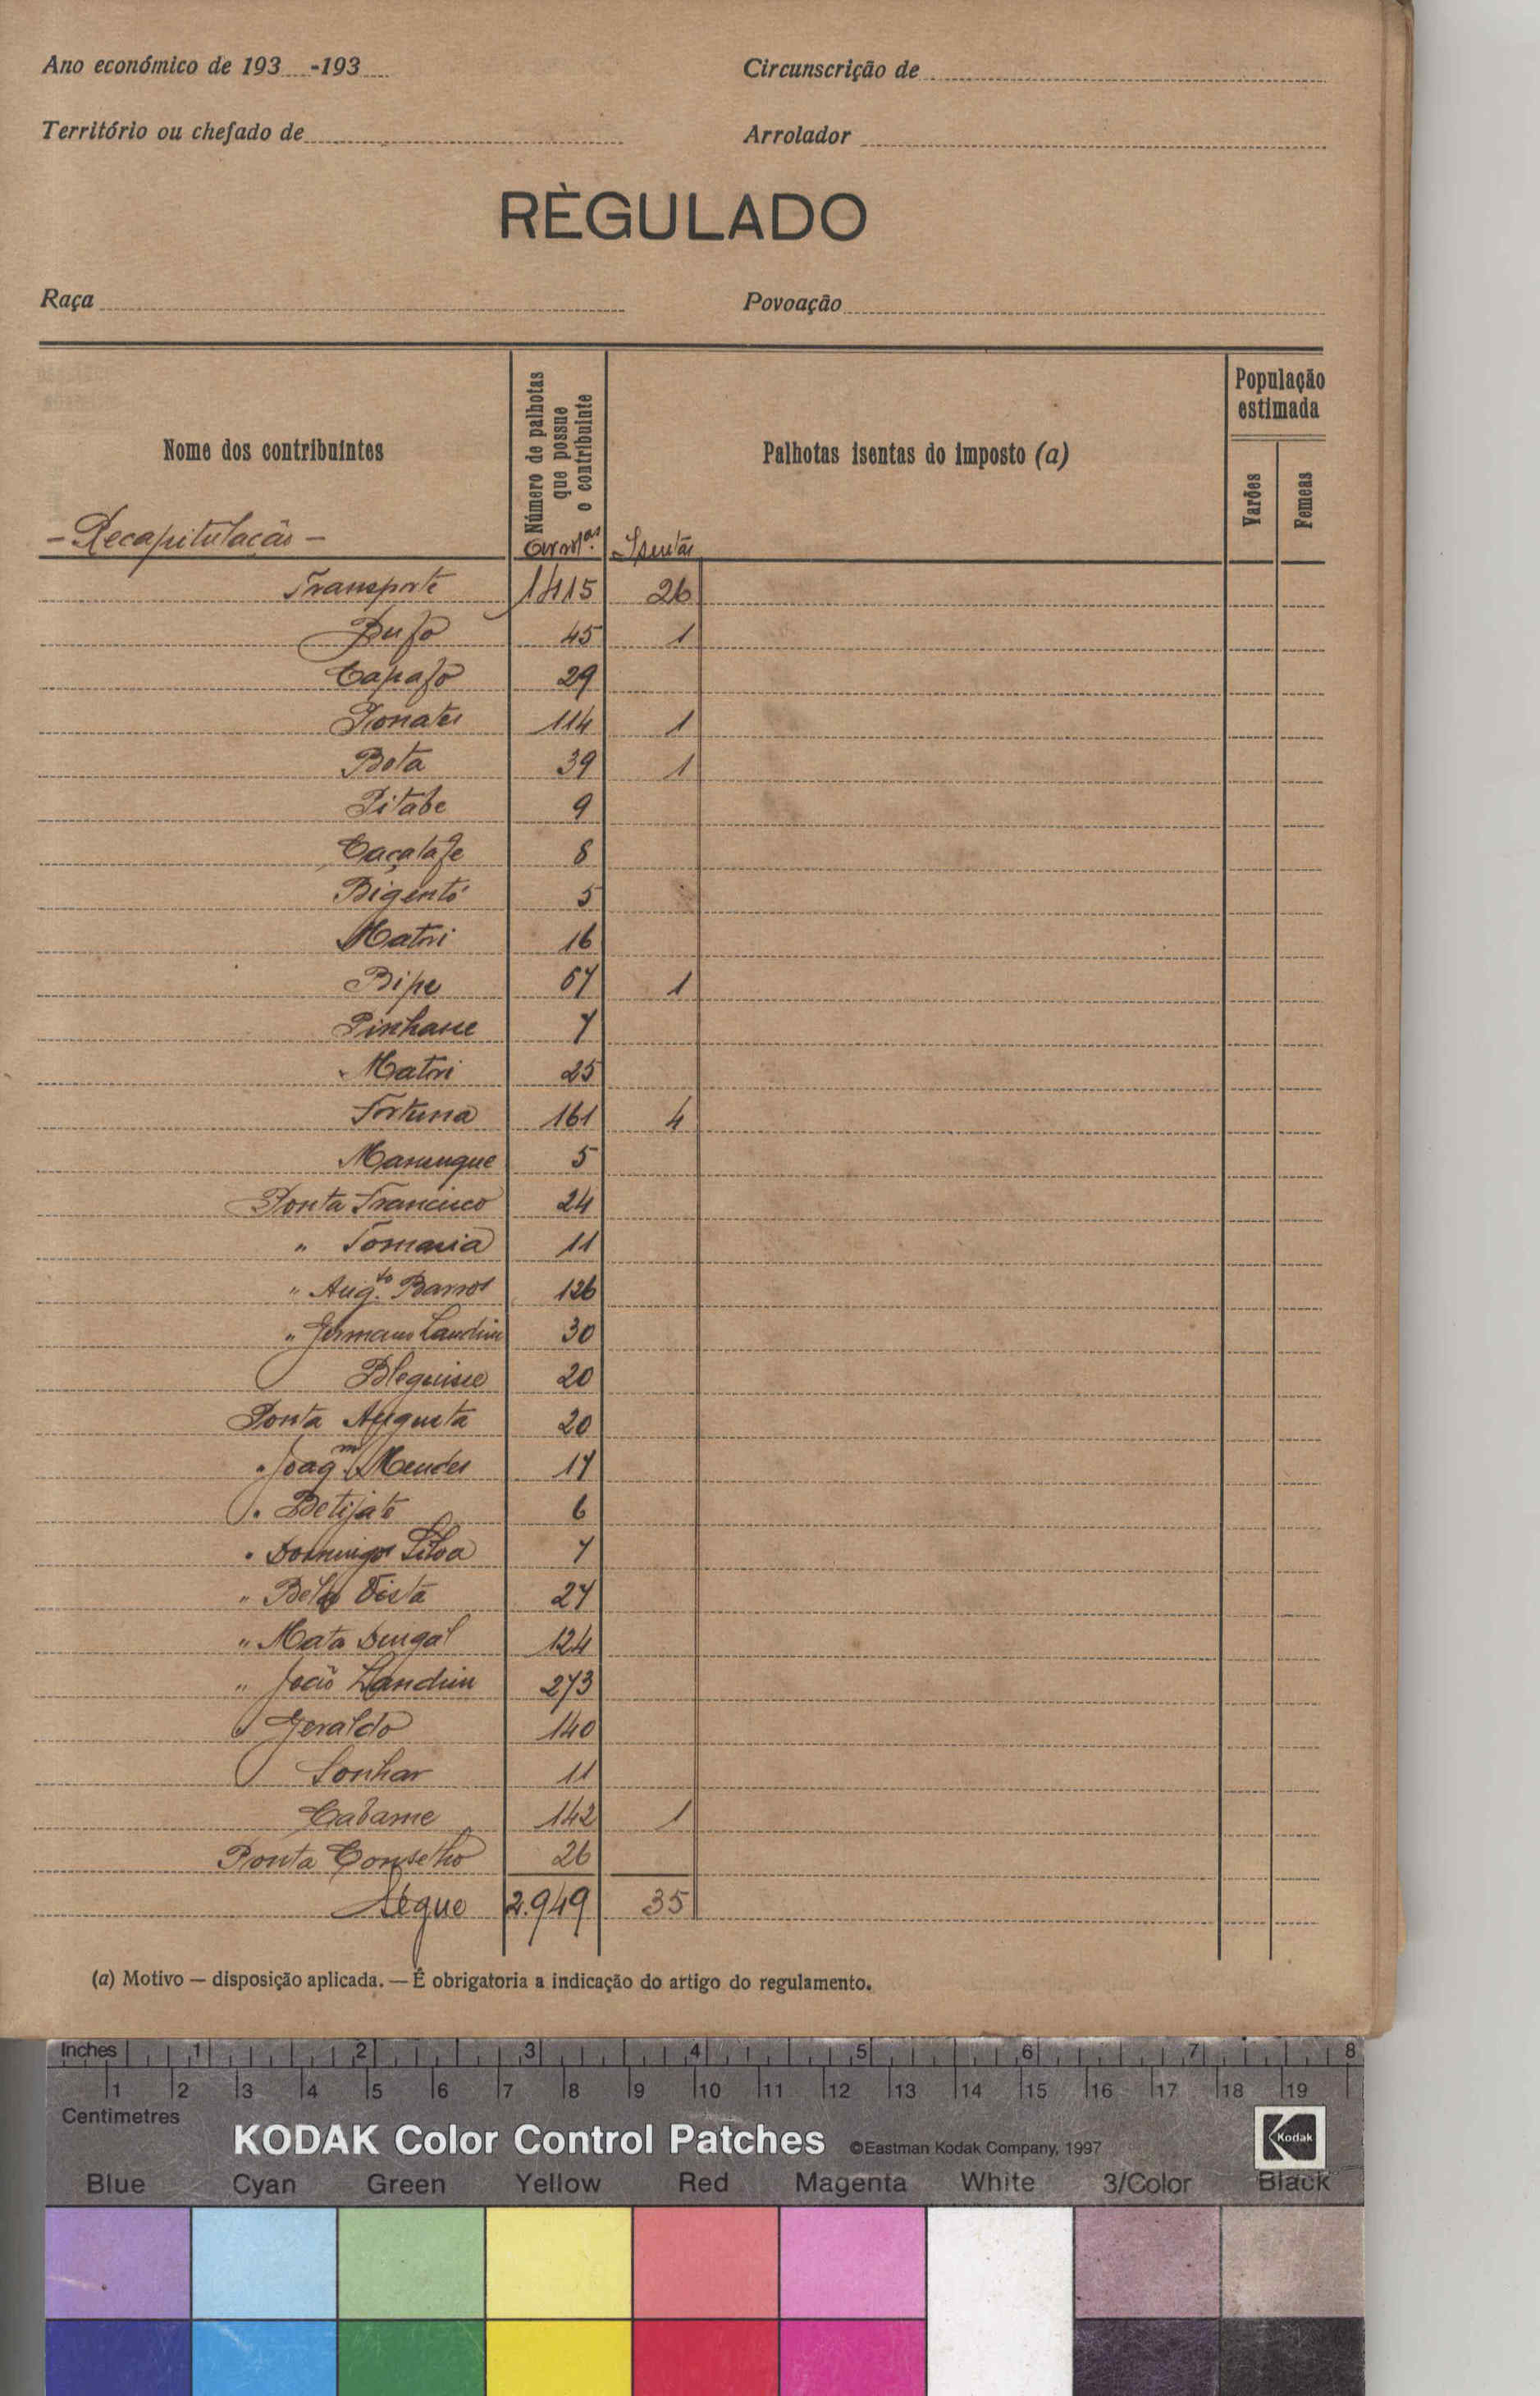 Ano económico de 193 -193
Circunscrição de
Território ou chefado de
Arrolador
RÈGULADO
Raça
Povoação
Nome dos contribuintes
Número de palhotas que possue o contribuinte
Palhotas isentas do imposto (a)
População estimada
Varões
Femeas
- Recapitulação - Isentas
Transporte 1415 26
Bufo 45 1
Capafo 29
Ponates 114 1
Bota 39 1
Pitabe 9
Caçalafe 8
Bigentó 5
Matri 16
Bipe 67 1
Pinhane 7
Matri 25
Fortuna 161 4
Manengue 5
Ponta Francisco 24
" Tomasia 11
" Aug.to Barros 126
" Germano Landim 30
Bleguisse 20
Ponta Augusta 20
" Joaq.m Mendes 17
" Betijate 6
" Domingos Silva 7
" Bela Vista 27
" Mata Dungal 124
" João Landim 273
" Geraldo 140
Sonhar 11
Cabame 142 1
Ponta Conselho 26
Segue 2.949 35
(a) Motivo — disposição aplicada. — É obrigatoria a indicação do artigo do regulamento.
Inches 1 2 3 4 5 6 7 8
1 2 3 4 5 6 7 8 9 10 11 12 13 14 15 16 17 18 19
Centimetres
KODAK Color Control Patches ©Eastman Kodak Company, 1997 Kodak
Blue Cyan Green Yellow Red Magenta White 3/Color Black